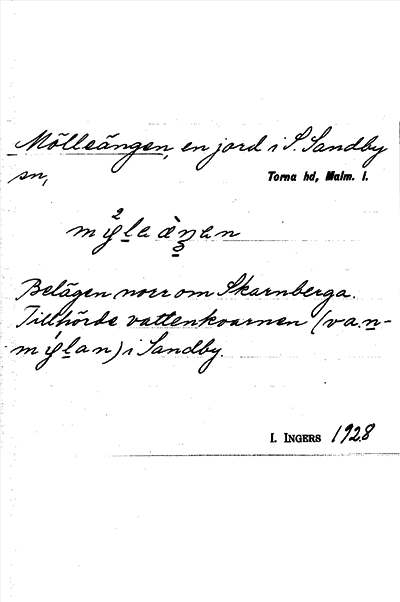 Mölleängen, en jord i S. Sandby
sn,
Torna hd, Malm. l.
Belägen norr om Skarnberga.
Tillhörde vattenkvarnen (van-
mylan) i Sandby.
I. INGERS 1928